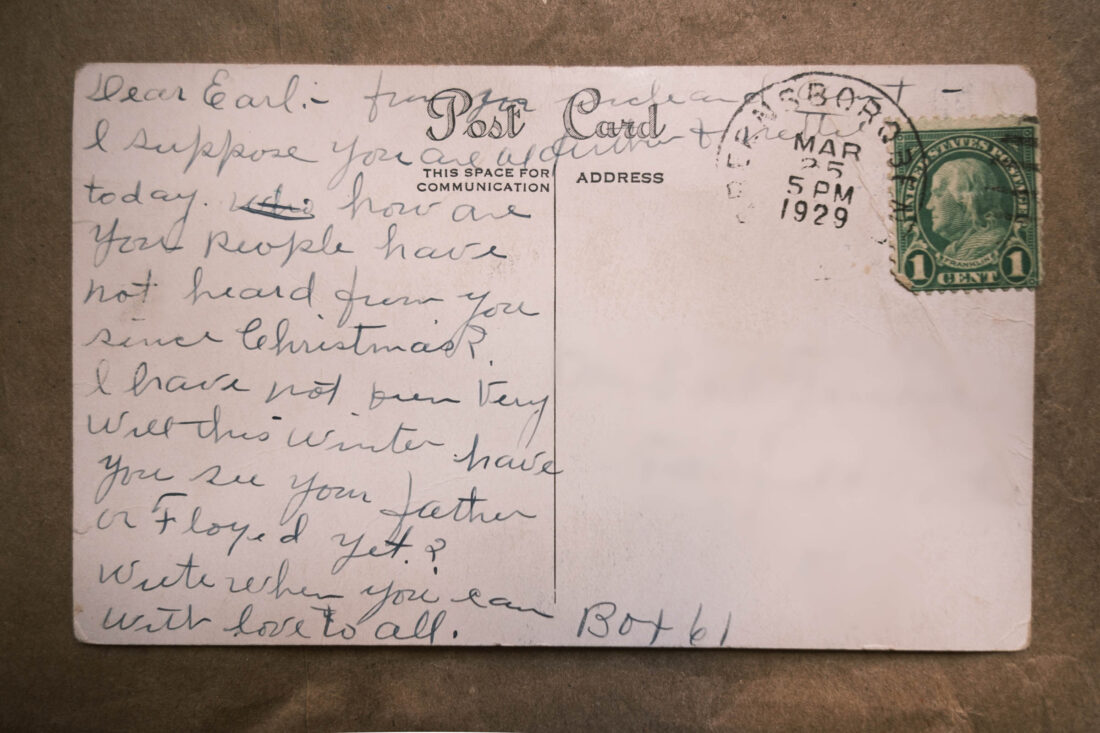 Dear Earl:- from your uncle and
I suppose you are older & prettier
today. how are
You people have
not heard from you
since Christmas?
I have not been Very
Well this winter have
you see your father
or Floyed yet?
Write when you can
with love to all.
Post Card
THIS SPACE FOR
COMMUNICATION
ADDRESS
MAR
25
5 PM
1929
UNITED STATES POSTAGE
FRANKLIN
1 CENT 1
Box 61